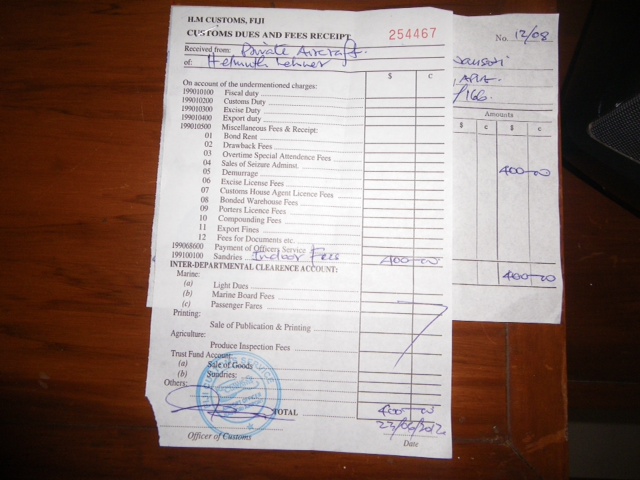 H.M CUSTOMS, FIJI
CUSTOMS DUES AND FEES RECEIPT
254467
Received from: Private Aircraft.
of: Helmuth Lehner
$ c
On account of the undermentioned charges:
199010100 Fiscal duty
199010200 Customs Duty
199010300 Excise Duty
199010400 Export duty
199010500 Miscellaneous Fees & Receipt:
01 Bond Rent
02 Drawback Fees
03 Overtime Special Attendence Fees
04 Sales of Seizure Adminst.
05 Demurrage
06 Excise License Fees
07 Customs House Agent Licence Fees
08 Bonded Warehouse Fees
09 Porters Licence Fees
10 Compounding Fees
11 Export Fines
12 Fees for Documents etc.
199068600 Payment of Officers Service
199100100 Sandries Indoor Fees 400-00
INTER-DEPARTMENTAL CLEARENCE ACCOUNT:
Marine:
(a) Light Dues
(b) Marine Board Fees
(c) Passenger Fares
Printing:
Sale of Publication & Printing
Agriculture:
Produce Inspection Fees
Trust Fund Account:
(a) Sale of Goods
(b) Sundries:
Others:
TOTAL 400-00
Officer of Customs
Date
No. 12/08
/166.
Amounts
$ c $ c
400-00
400-00